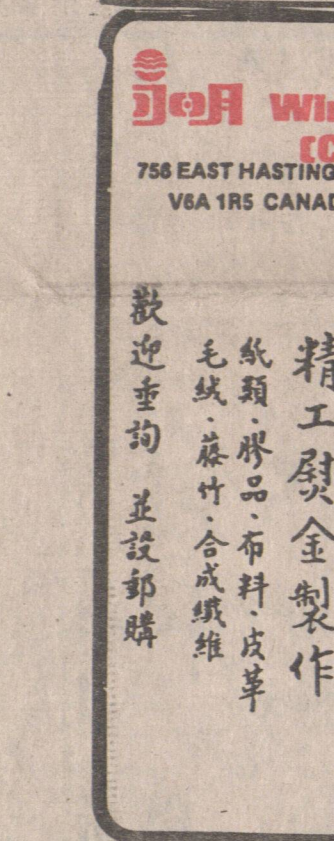 永明 Win
(C
756 EAST HASTING
V6A 1R5 CANAD
精工熨金製作
紙類、膠品、布料、皮革
毛絨、藤竹、合成纖維
歡迎垂詢 並設郵購